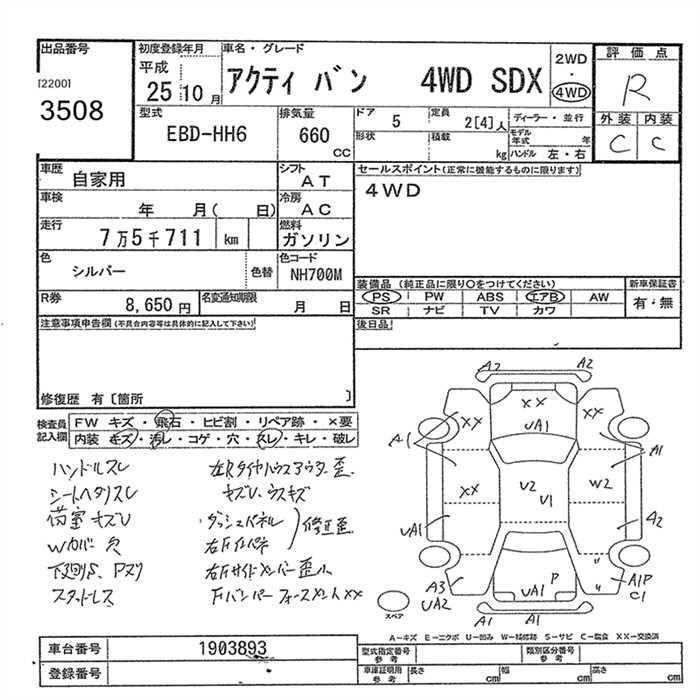 出品番号
[2200]
3508
初度登録年月
平成
25 10 月
車名・グレード
アクティ バン 4WD SDX
2WD
・
4WD
評価点
R
外装 内装
C C
型式
EBD-HH6
排気量
660
CC
ドア 5
定員 2[4]人
ディーラー・並行
形状
積載 kg
モデル年式 年
ハンドル 左・右
車歴
自家用
シフト
AT
車検
年 月( 日)
冷房
AC
走行
7万5千711 km
燃料
ガソリン
色
シルバー
色替
色コード
NH700M
R券
8,650 円
名変通知期限
月 日
セールスポイント(正常に機能するものに限ります)
4WD
装備品 (純正品に限り○をつけてください)
PS PW ABS エアB AW
SR ナビ TV カワ
新車保証書
有・無
後日品
注意事項申告欄(不具合内容等は具体的に記入して下さい)
修復歴 有〔箇所 〕
検査員記入欄
FW キズ・飛石・ヒビ割・リペア跡・×要
内装 キズ・汚レ・コゲ・穴・スレ・キレ・破レ
ハンドルスレ
シートヘタリスレ
荷室キズU
Wカバー欠
下廻りS、Pヌリ
スタッドレス
左Rタイヤハウスアウター歪
キズU、ウスキズ
ダッシュパネル
右Fインパネ
修正歪
右Fサイドメンバー歪小
FバンパーフォースメントXX
A2 A2
XX
UA1
XX
XX
A1
A1
XX
U2
U1
W2
UA1
A2
〃
A3
UA2
P
UA1
〃
A1P
C1
A1 A1
スペア
A―キズ E―エクボ U―凹み W―補修跡 S―サビ C―腐食 XX―交換済
車台番号
1903893
登録番号
型式指定番号
参考
類別区分番号
参考
車庫証明用
参考
長さ cm
幅 cm
高さ cm